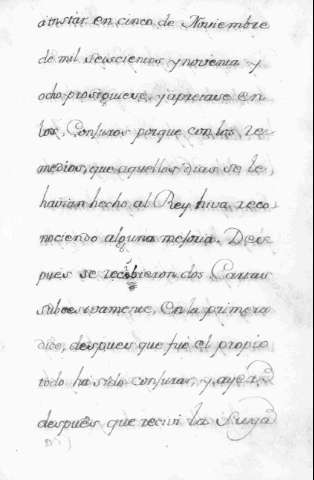 á instar en cinco de Noviembre
de mil seiscientos y noventa y
ocho prosiguiese, y apretase en
los, Conjuros porque con los, re-
medios, que aquellos dias se le,
havian hecho al Rey hiva, reco-
nociendo alguna mejoria. Des-
pues se recibieron dos Cartas
subcesivamente, En la primera
dice, despues que fue el propio
todo ha sido conjurar, y ayer,
despues que recivi la Suya